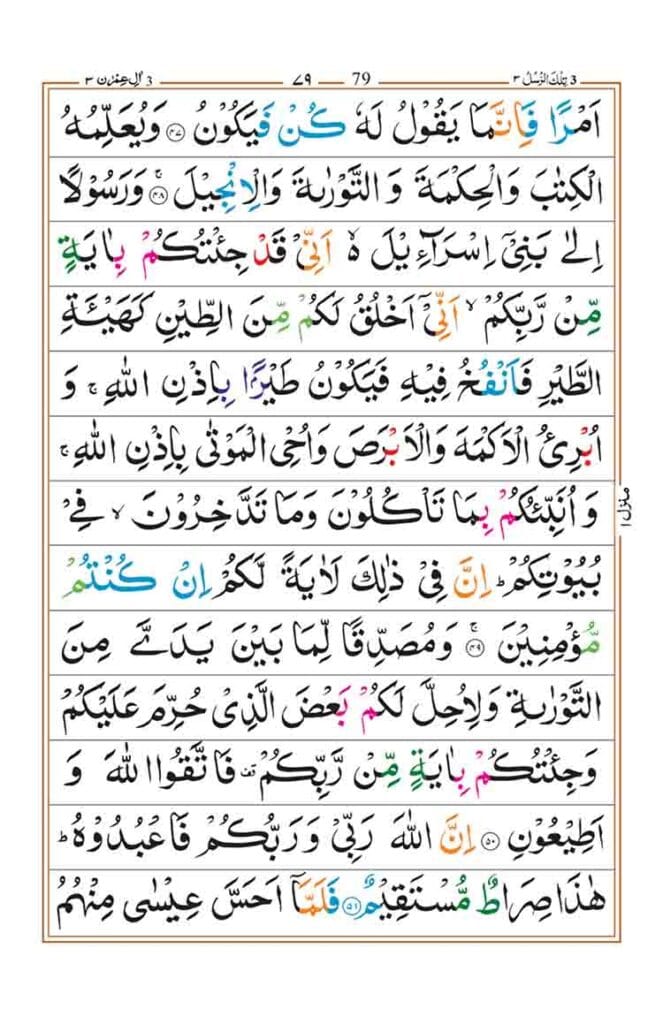 3 تِلْكَ الرُّسُلُ ٣ 79 ٧٩ 3 اٰل عِمْرٰن ٣
اَمْرًا فَاِنَّمَا يَقُوْلُ لَهٗ كُنْ فَيَكُوْنُ ﴿٤٧﴾ وَيُعَلِّمُهُ
الْكِتٰبَ وَالْحِكْمَةَ وَ التَّوْرٰىةَ وَالْاِنْجِيْلَ ۚ﴿٤٨﴾ وَرَسُوْلًا
اِلٰى بَنِيْۤ اِسْرَآءِيْلَ ۙ۬ اَنِّيْ قَدْ جِئْتُكُمْ بِاٰيَةٍ
مِّنْ رَّبِّكُمْ ۙ اَنِّيْۤ اَخْلُقُ لَكُمْ مِّنَ الطِّيْنِ كَهَيْـَٔةِ
الطَّيْرِ فَاَنْفُخُ فِيْهِ فَيَكُوْنُ طَيْرًۢا بِاِذْنِ اللّٰهِ ۚ وَ
اُبْرِئُ الْاَكْمَهَ وَالْاَبْرَصَ وَاُحْيِ الْمَوْتٰى بِاِذْنِ اللّٰهِ ۚ
وَ اُنَبِّئُكُمْ بِمَا تَاْكُلُوْنَ وَمَا تَدَّخِرُوْنَ ۙ فِيْ
بُيُوْتِكُمْ ؕ اِنَّ فِيْ ذٰلِكَ لَاٰيَةً لَّكُمْ اِنْ كُنْتُمْ
مُّؤْمِنِيْنَ ۚ﴿٤٩﴾ وَمُصَدِّقًا لِّمَا بَيْنَ يَدَيَّ مِنَ
التَّوْرٰىةِ وَلِاُحِلَّ لَكُمْ بَعْضَ الَّذِيْ حُرِّمَ عَلَيْكُمْ
وَجِئْتُكُمْ بِاٰيَةٍ مِّنْ رَّبِّكُمْ ۫ فَاتَّقُوا اللّٰهَ وَ
اَطِيْعُوْنِ ﴿٥٠﴾ اِنَّ اللّٰهَ رَبِّيْ وَرَبُّكُمْ فَاعْبُدُوْهُ ؕ
هٰذَا صِرَاطٌ مُّسْتَقِيْمٌ ﴿٥١﴾ فَلَمَّاۤ اَحَسَّ عِيْسٰى مِنْهُمُ
منزل ١